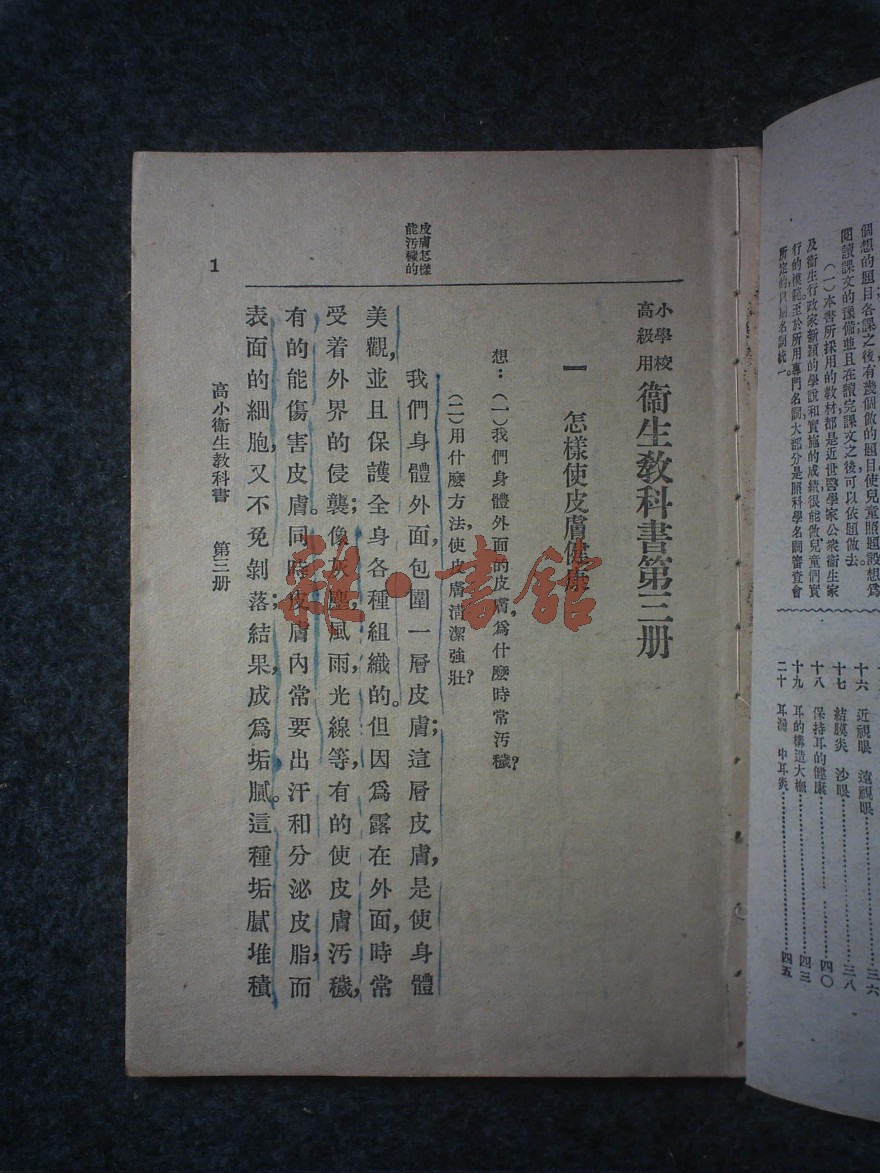 個想的題目各課之後有幾個做的題目使兒童照題設想爲
閱讀課文的豫備並且在讀完課文之後可以依題做去。
(一)本書所採用的教材都是近世醫學家公衆衞生家
及衞生行政家新穎的學說和實施的成績很能做兒童們實
行的模範。至於所用專門名詞大部分是照科學名詞審查會
所定的以期名詞統一。
十六 近視眼 遠視眼……三六
十七 結膜炎 沙眼……三八
十八 保持耳的健康……四〇
十九 耳的構造大概……四三
二十 耳漏 中耳炎……四五
小學校
高級用
衞生敎科書第三册
一 怎樣使皮膚健康
想:(一)我們身體外面的皮膚,爲什麼時常污穢?
(二)用什麼方法,使皮膚清潔強壯?
皮膚怎樣
能污穢的
我們身體外面,包圍一層皮膚;這層皮膚,是使身體
美觀,並且保護全身各種組織的。但因爲露在外面,時常
受着外界的侵襲;像灰塵,風雨,光線等,有的使皮膚汚穢,
有的能傷害皮膚。同時,皮膚內常要出汗和分泌皮脂,而
表面的細胞,又不免剝落;結果,成爲垢膩。這種垢膩堆積,
高小衞生敎科書 第三册
1
雜·書館